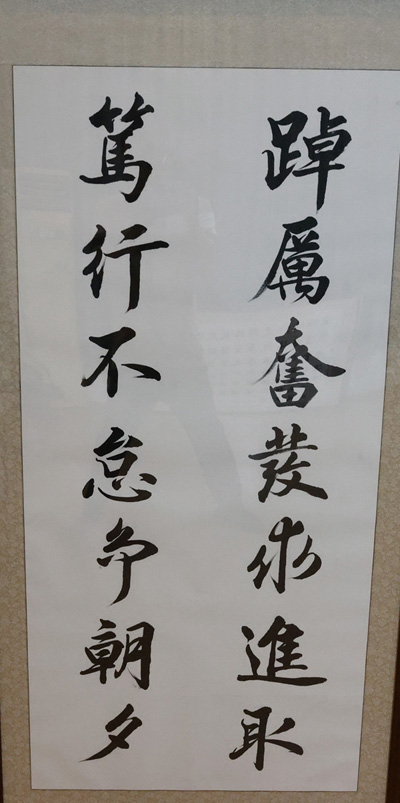 踔厲奮發求進取
篤行不怠争朝夕